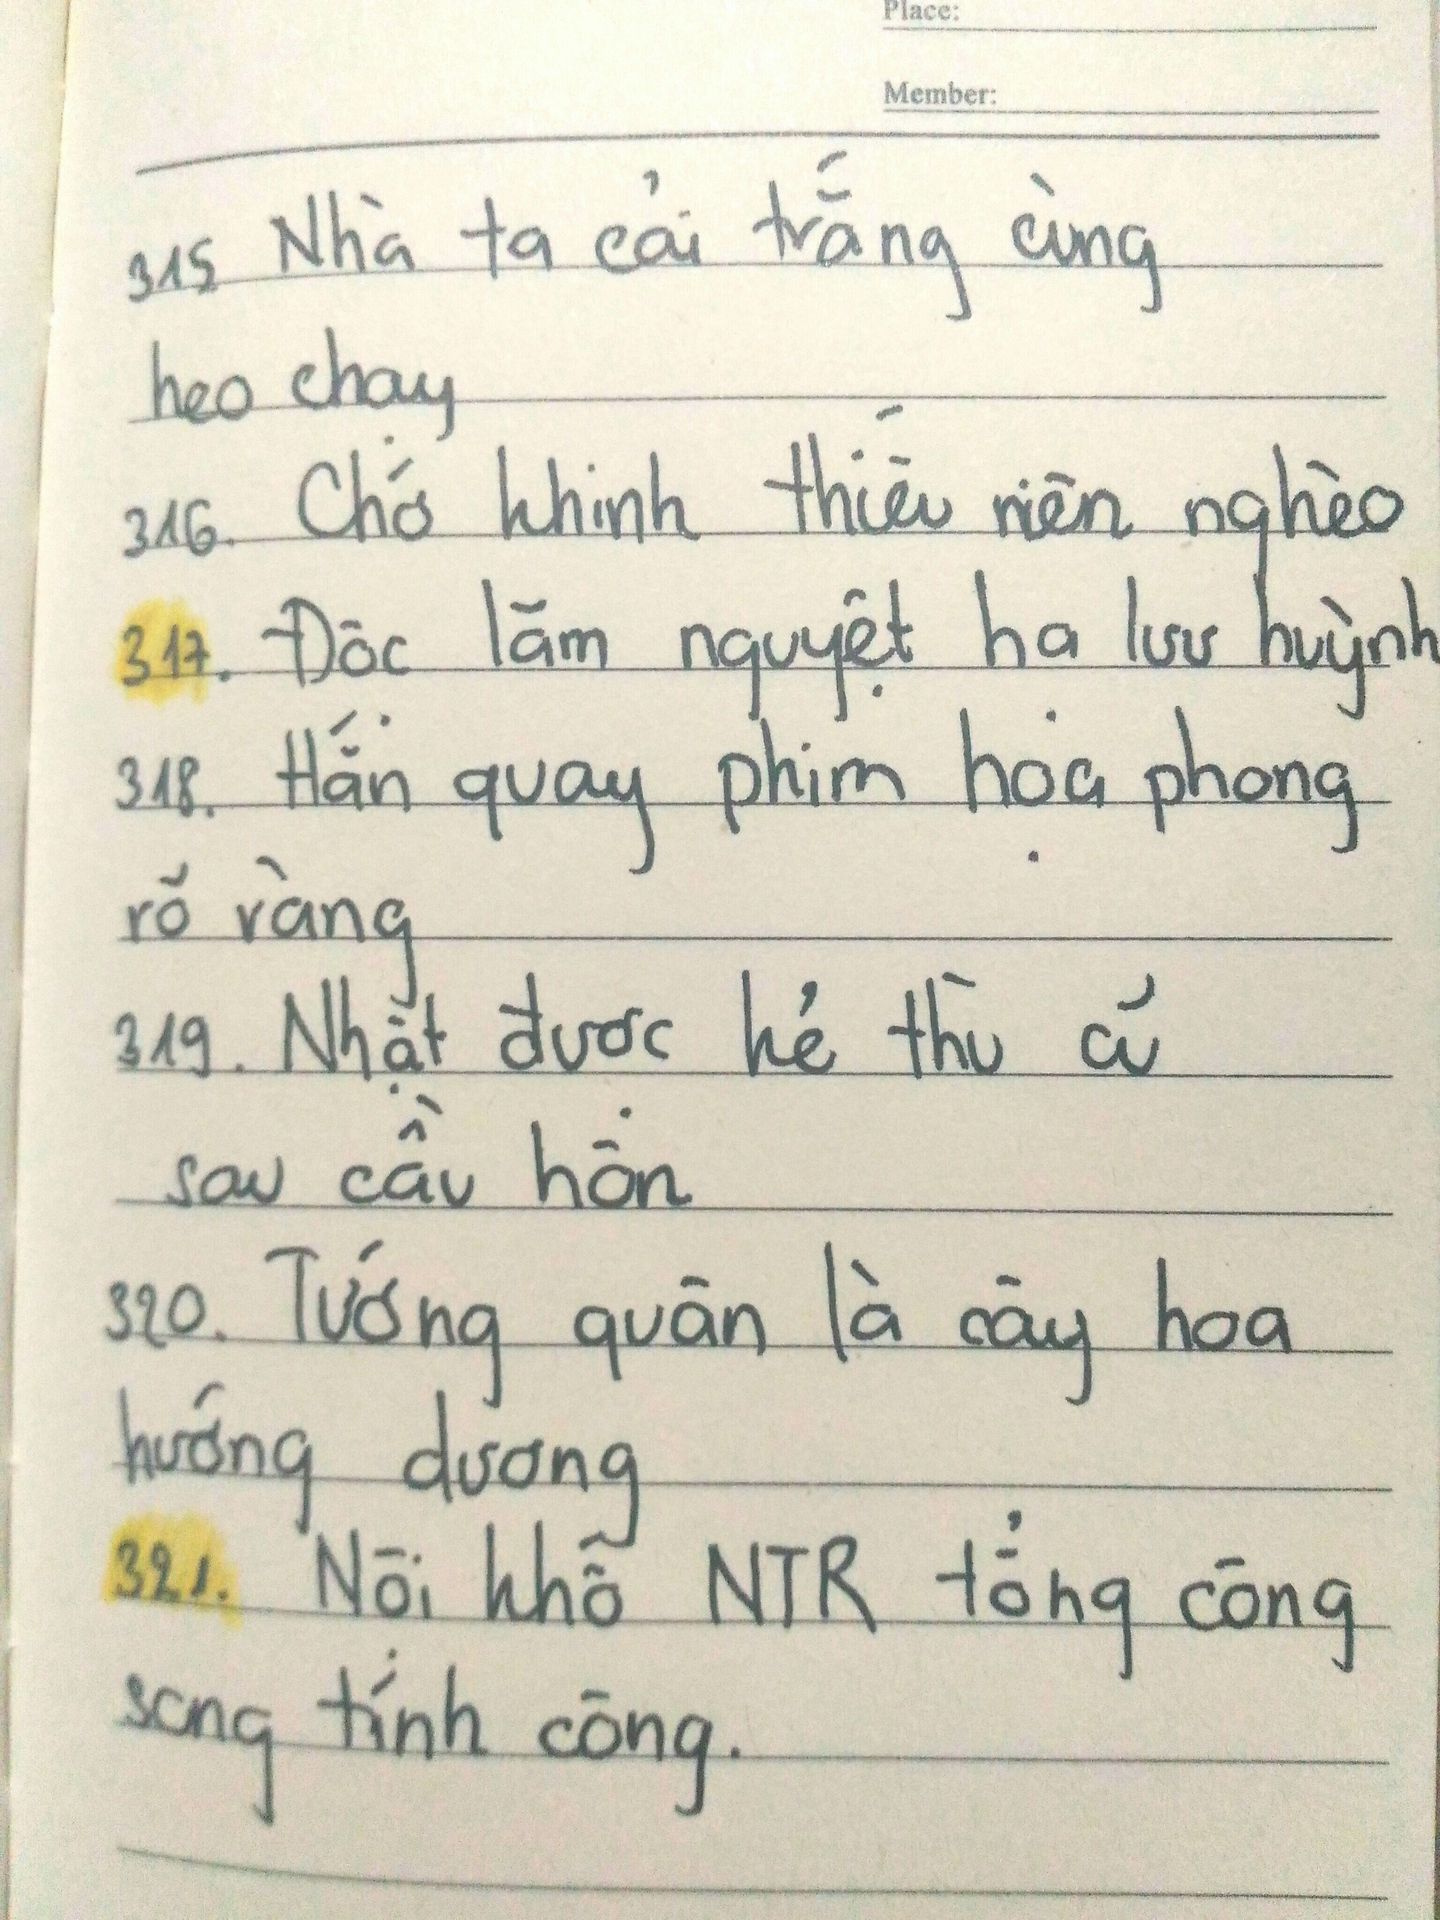 Place:
Member:
315 Nhà ta cải trắng cùng
heo chạy
316. Chớ khinh thiếu niên nghèo
317. Độc lãm nguyệt hạ lưu huỳnh
318. Hắn quay phim họa phong
rõ ràng
319. Nhặt được kẻ thù cũ
sau cầu hôn
320. Tướng quân là cây hoa
hướng dương
321. Nỗi khổ NTR tổng công
song tính công.